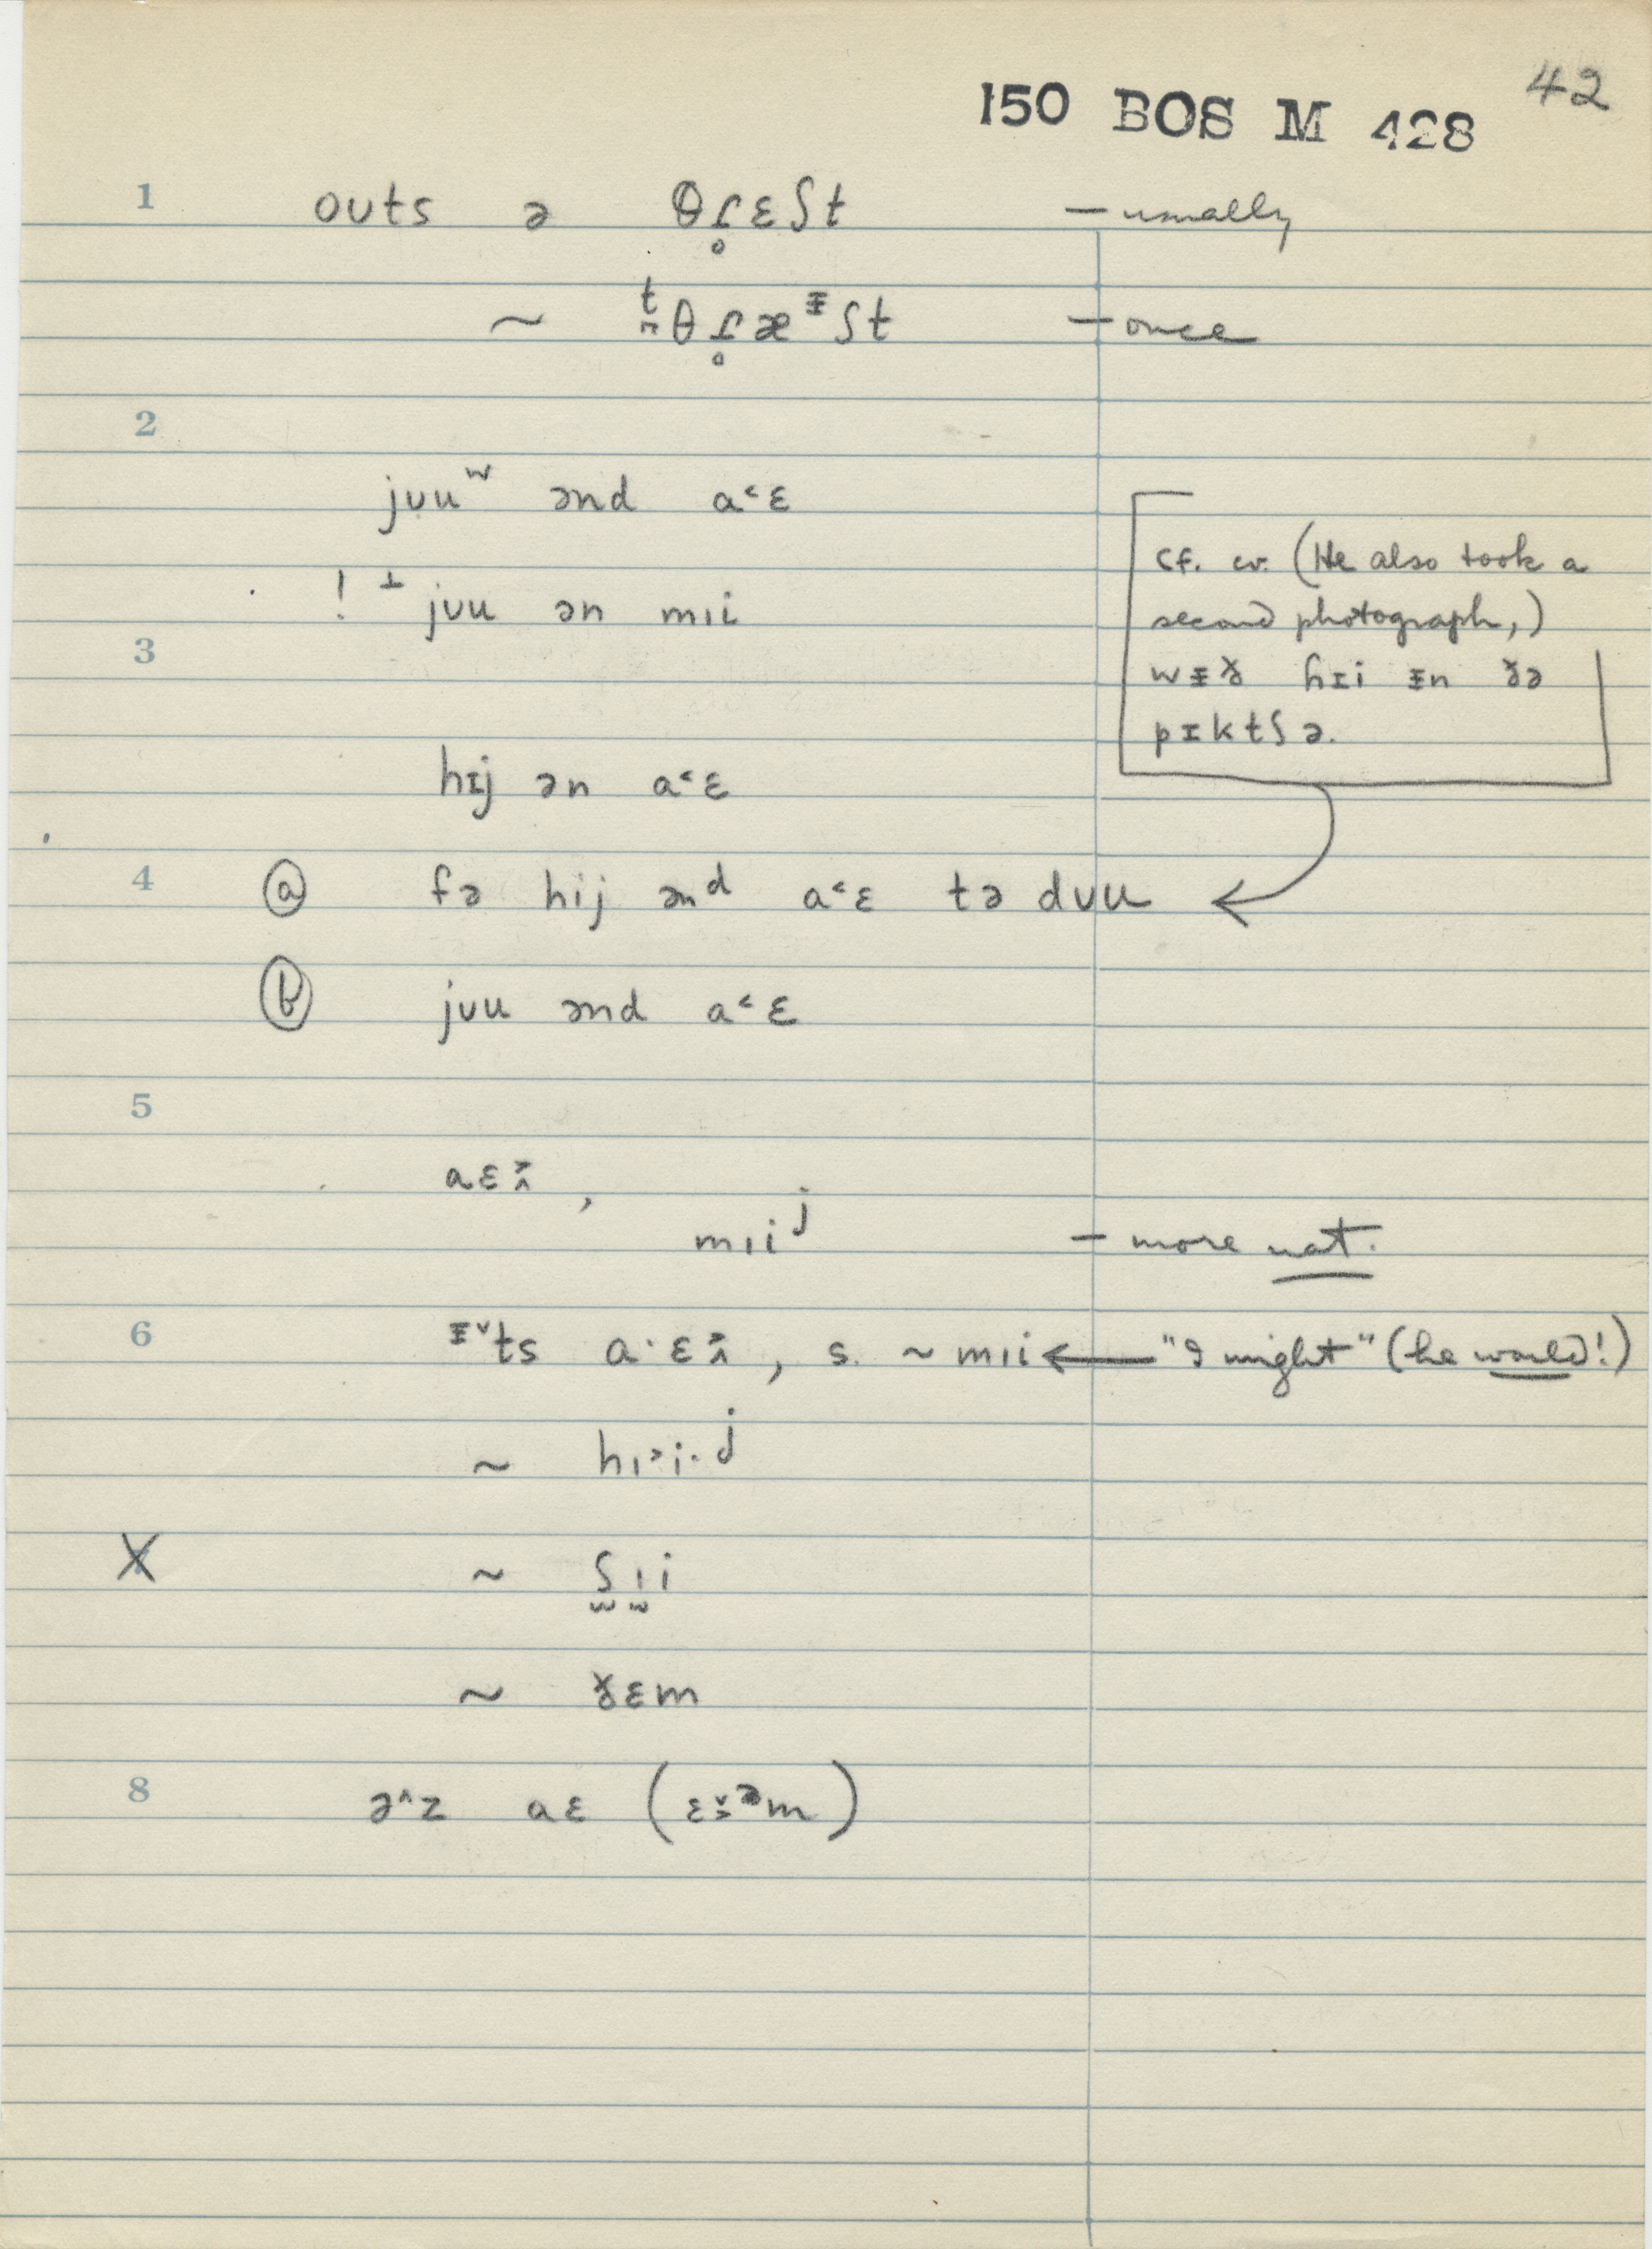 42
150 BOS M 428
1 oʊts ə θɾ̥ɛʃt — usually
~ t̪θɾ̥æᵻʃt — once
2
jʊuʷ ənd a˂ɛ
! ⊥ jʊu ən mɪi
3
cf. cv. (He also took a
second photograph,)
wᵻð hɪi ᵻn ðə
pɪktʃə.
hɪj ən a˂ɛ
4 ⓐ fə hij ənᵈ a˂ɛ tə dʊu
ⓑ jʊu ənd a˂ɛ
5
aɛ ,
mɪiʲ — more nat.
6 ᵻ˅ts a·ɛ , s. ~ mɪi ← "I might" (he would!)
~ hɪ˃i·ʲ
X ~ ʃ̫ɪ̫i
~ ðɛm
8 ə˄z aɛ (ɛəm)